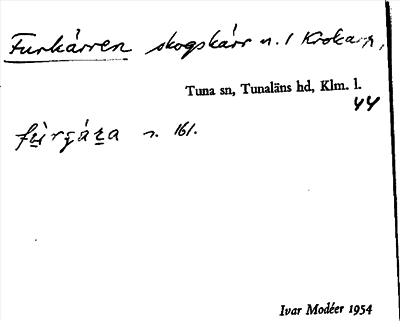 Furkärren skogskärr n. / Krokarp,
Tuna sn, Tunaläns hd, Klm. l.
44
n. 161.
Ivar Modéer 1954